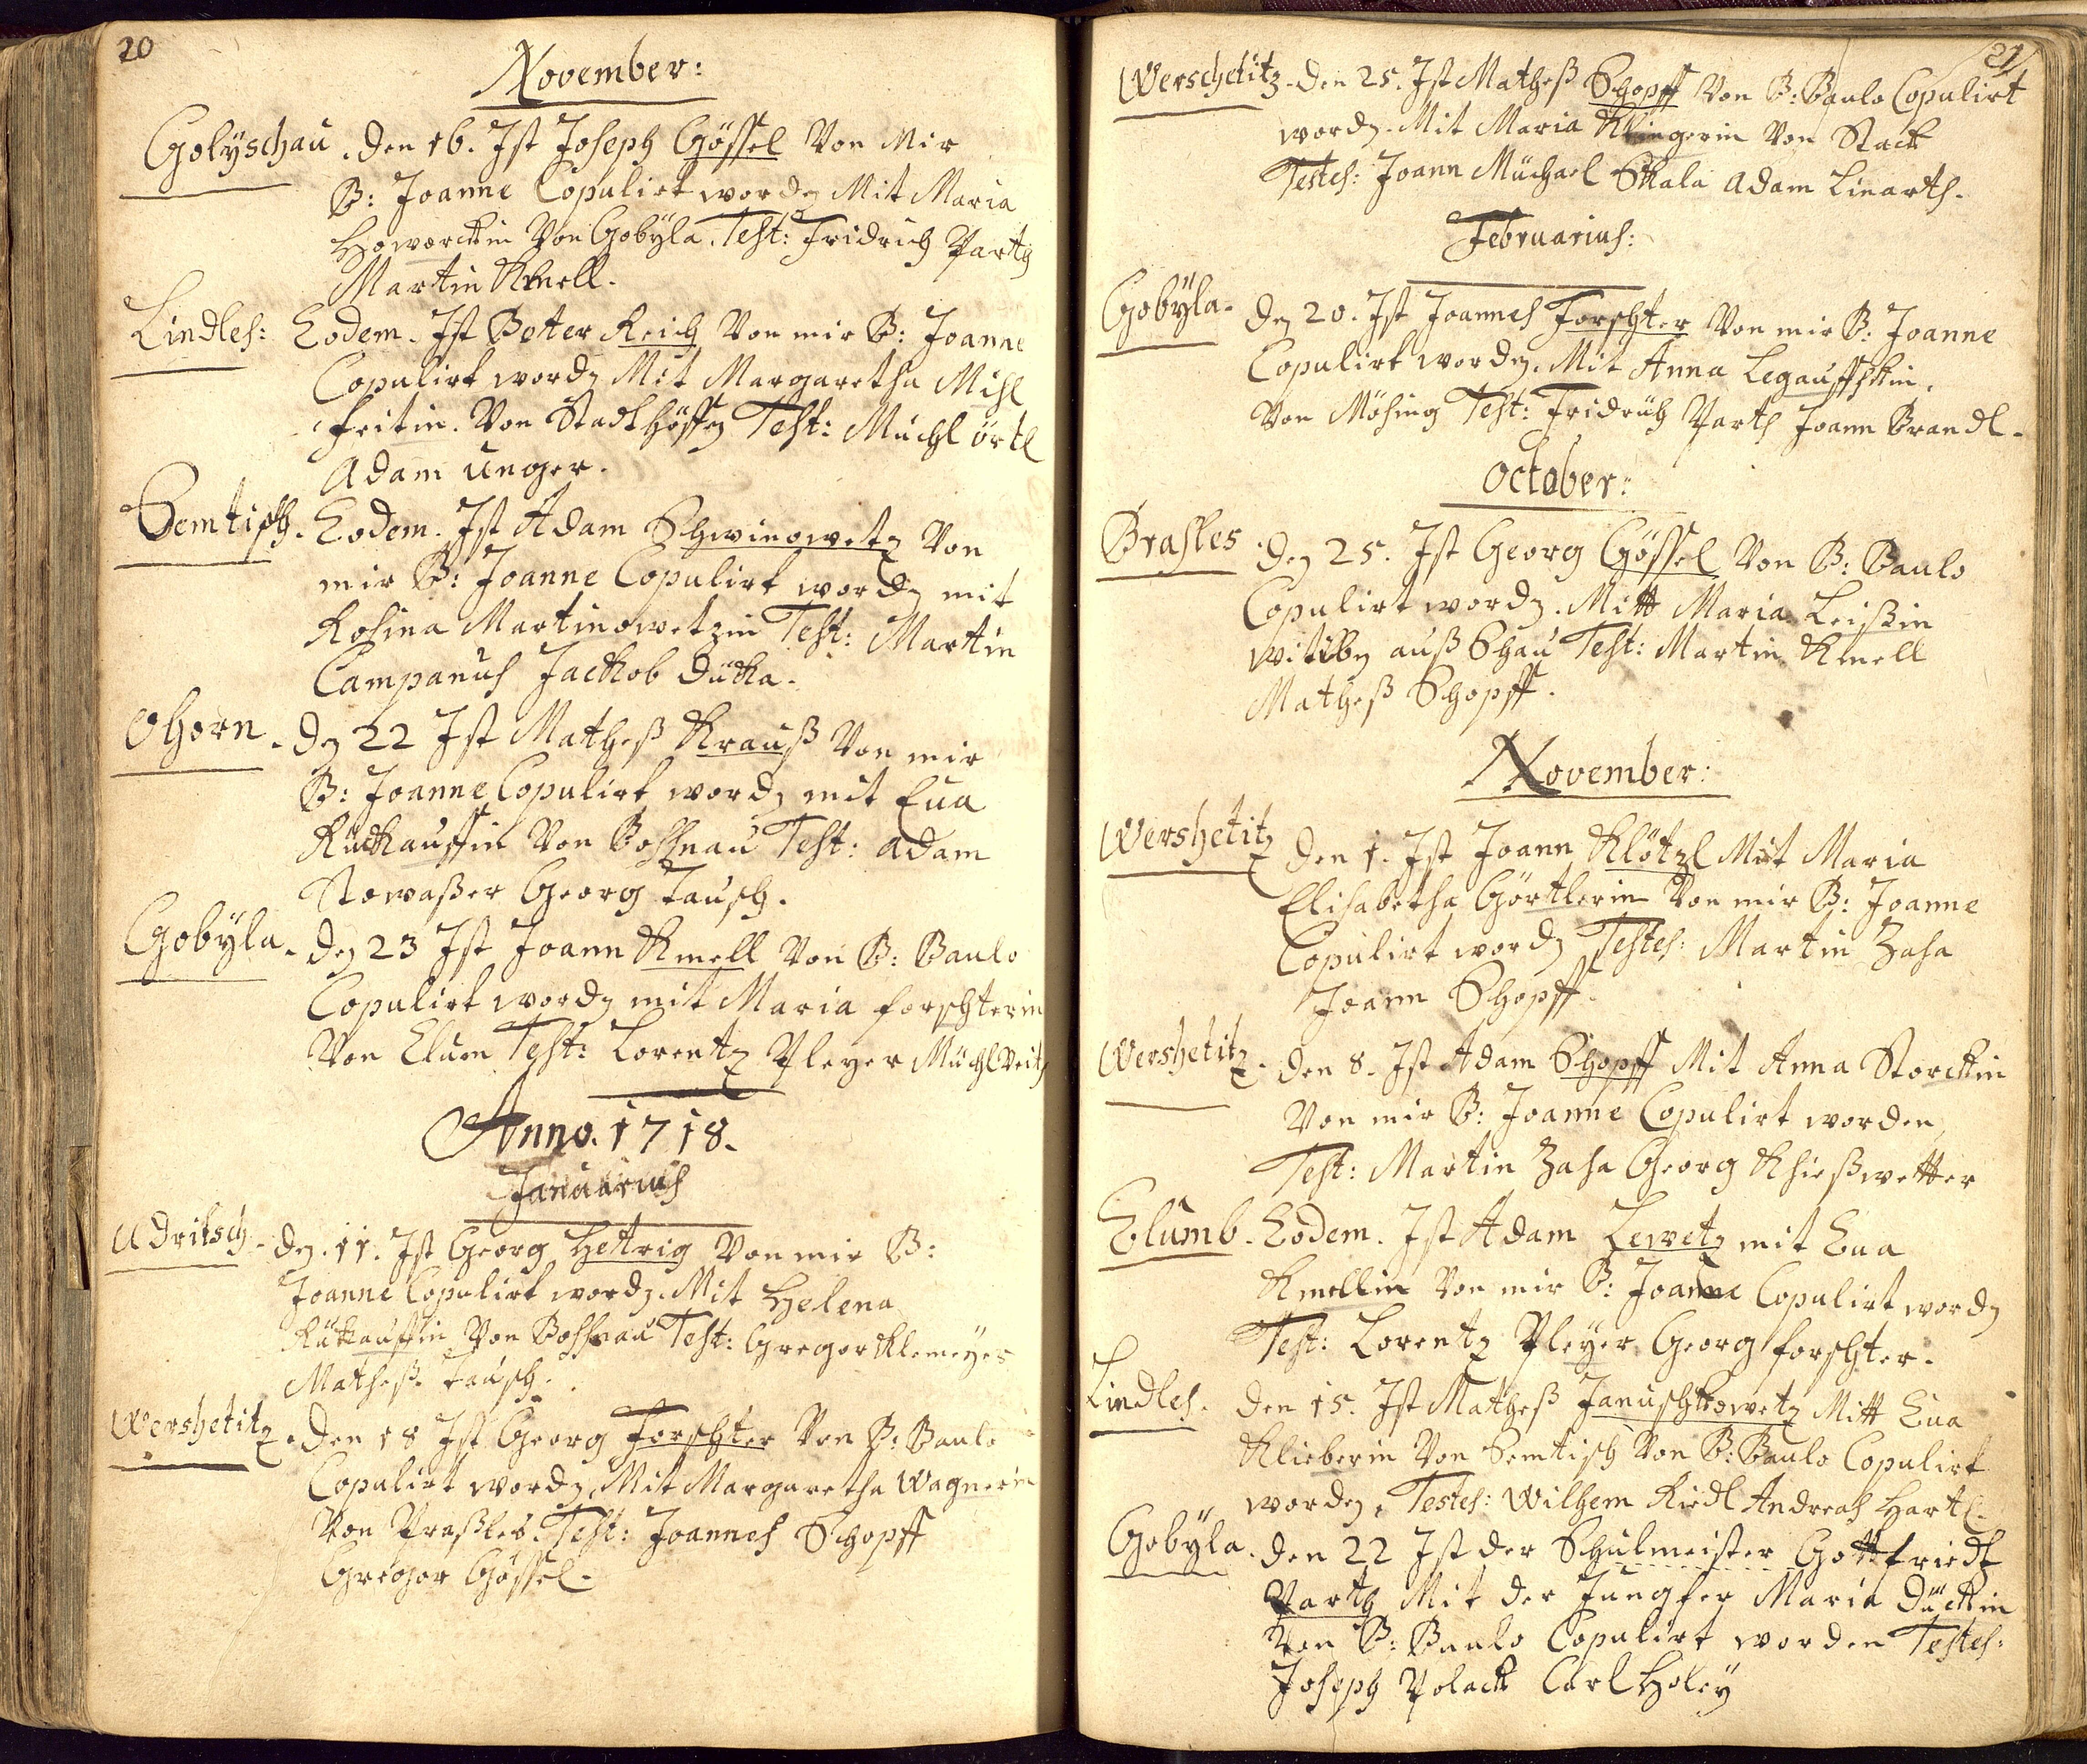 20
November:
Golyschau. den 16. Ist Joseph Gössel Von Mir
B: Joanne Copulirt wordn Mit Maria
Haworckin Von Gobÿla. Test: Fridrich Parth
Martin Knell.
Lindles: Eodem. Ist Beter Reich Von mir B: Joanne
Copulirt wordn Mit Margaretha Mihl
feitin. Von Stadthöffn Test: Müchl örtl
Adam Unger.
Semtisch. Eodem. Ist Adam Schwinowetz Von
mir B: Joanne Copulirt wordn mit
Rosina Martinowetzin Test: Martin
Campanus Jackob Duka.
Ohorn. dn 22 Ist Matheß Krauß Von mir
B: Joanne Copulirt wordn mit Eua
Ruckauffin Von Bossnau Test: Adam
Stowaßer Georg Tausch.
Gobÿla. dn 23 Ist Joann Knell Von B: Baulo
Copulirt wordn mit Maria forschterin
Von Elum Test: Lorentz Pleyer Müchl Veith
Anno. 1718.
Januarius
Udritsch. dn. 11. Ist Georg Hettrig Von mir B:
Joanne Copulirt wordn. Mit Helena
Rukauffin Von Bossnau Test: Gregor Klemeyer
Matheß Tausch.
Wershetitz. den 18 Ist Georg Forschter Von B: Baulo
Copulirt wordn Mit Margaretha Wagnerin
Von Praßles. Test: Joannes Schopff
Gregor Gössel.
21
Werschetitz. den 25. Ist Matheß Schopff Von B: Baulo Copulirt
wordn. Mit Maria Klingerin Von Stack
Testes: Joann Müchael Skala Adam Linarth.
Februarius:
Gobÿla. dn 20. Ist Joannes Forschter Von mir B: Joanne
Copulirt wordn. Mit Anna Legauffskin.
Von Mösing Test: Fridrich Parth Joann Brandl.
October:
Brasles dn 25. Ist Georg Gössel Von B: Baulo
Copulirt wordn. Mitt Maria Leißin
wittibn auß Schau Test: Martin Knell
Matheß Schopff.
November:
Wershetitz den 1. Ist Joann Klötzl Mit Maria
Elisabetha Görtlerin Von mir B: Joanne
Copulirt wordn Testes: Martin Zasa
Joann Schopff.
Wershetitz. den 8. Ist Adam Schopff Mit Anna Storckin
Von mir B: Joanne Copulirt worden
Test: Martin Zasa Georg Khießwetter
Elumb. Eodem. Ist Adam Lewetz mit Eua
Knellin Von mir B: Joanne Copulirt wordn
Test: Lorentz Pleÿer Georg forschter.
Lindles. den 15. Ist Matheß Januschkowetz Mitt Eua
Klieberin Von Semtisch Von B: Baulo Copulirt
wordn, Testes: Wilhem Riedl Andreas Hartl.
Gobÿla. den 22 Ist der Schulmeister Gottfriedt
Parth Mit der Jungfer Maria Dückin
Von B: Baulo Copulirt worden Testes:
Joseph Polack Carl Holeÿ